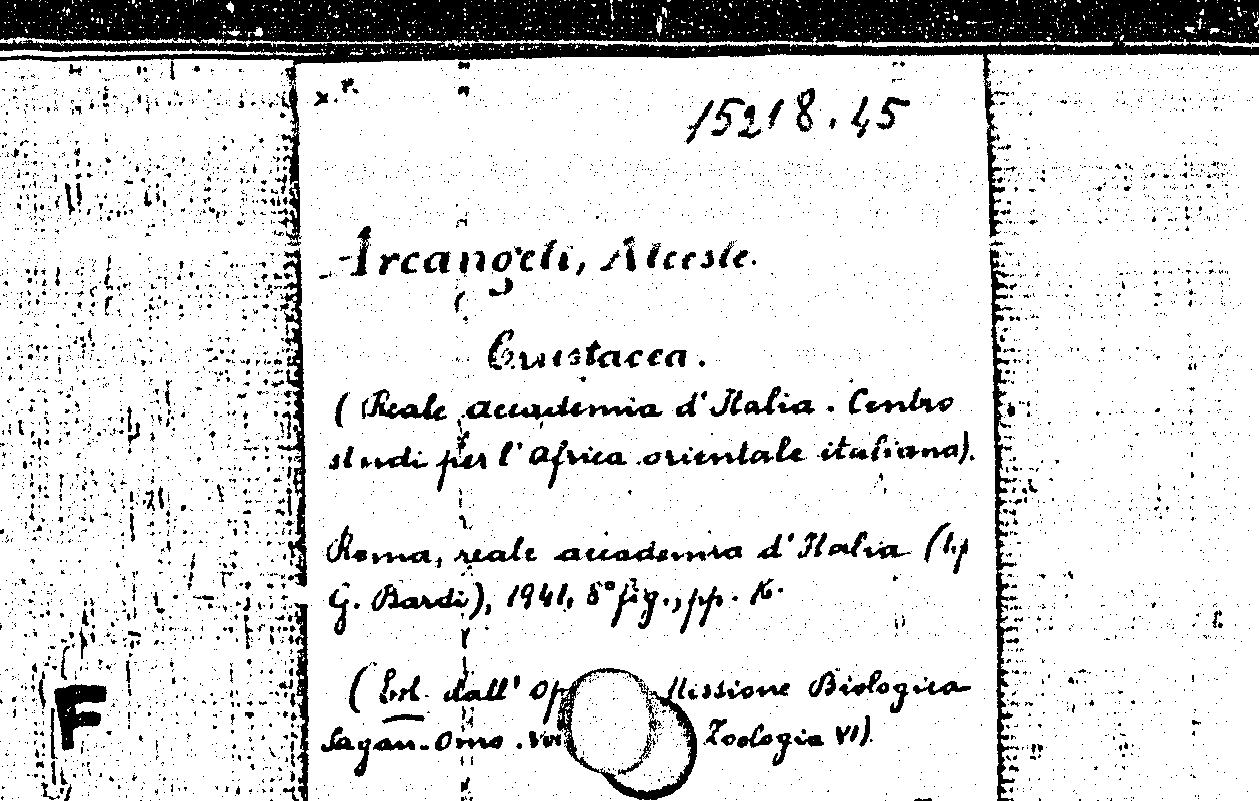 x.P.
15218.45
Arcangeli, Alceste.
Crustacea.
(Reale accademia d'Italia. Centro
studi per l'Africa orientale italiana).
Roma, reale accademia d'Italia (tip
G. Bardi), 1941, 8° fig., pp. 16.
(Estr. dall' Op Missione Biologica
Sagan-Omo. Vol Zoologia VI).
F